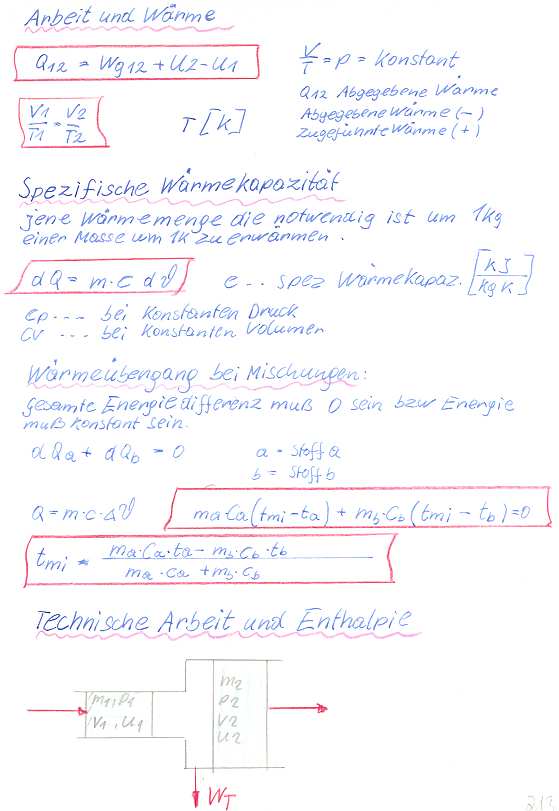 Arbeit und Wärme
Q12 = Wg12 + U2 - U1
V/T = p = Konstant
Q12 Abgegebene Wärme
Abgegebene Wärme (-)
Zugeführte Wärme (+)
V1/T1 = V2/T2
T [K]
Spezifische Wärmekapazität
jene Wärmemenge die notwendig ist um 1kg
einer Masse um 1K zu erwärmen.
dQ = m·c dϑ
c .. spez Wärmekapaz. [kJ/kg K]
cp ... bei Konstanten Druck
cv ... bei Konstanten Volumen
Wärmeübergang bei Mischungen:
gesamte Energiedifferenz muß 0 sein bzw Energie
muß konstant sein.
dQa + dQb = 0
a = Stoff a
b = Stoff b
Q = m·c·Δϑ
ma·Ca(tmi-ta) + mb·Cb(tmi-tb)=0
tmi = ma·Ca·ta - mb·Cb·tb / ma·Ca + mb·Cb
Technische Arbeit und Enthalpie
m1, p1
V1, U1
m2
p2
V2
U2
WT